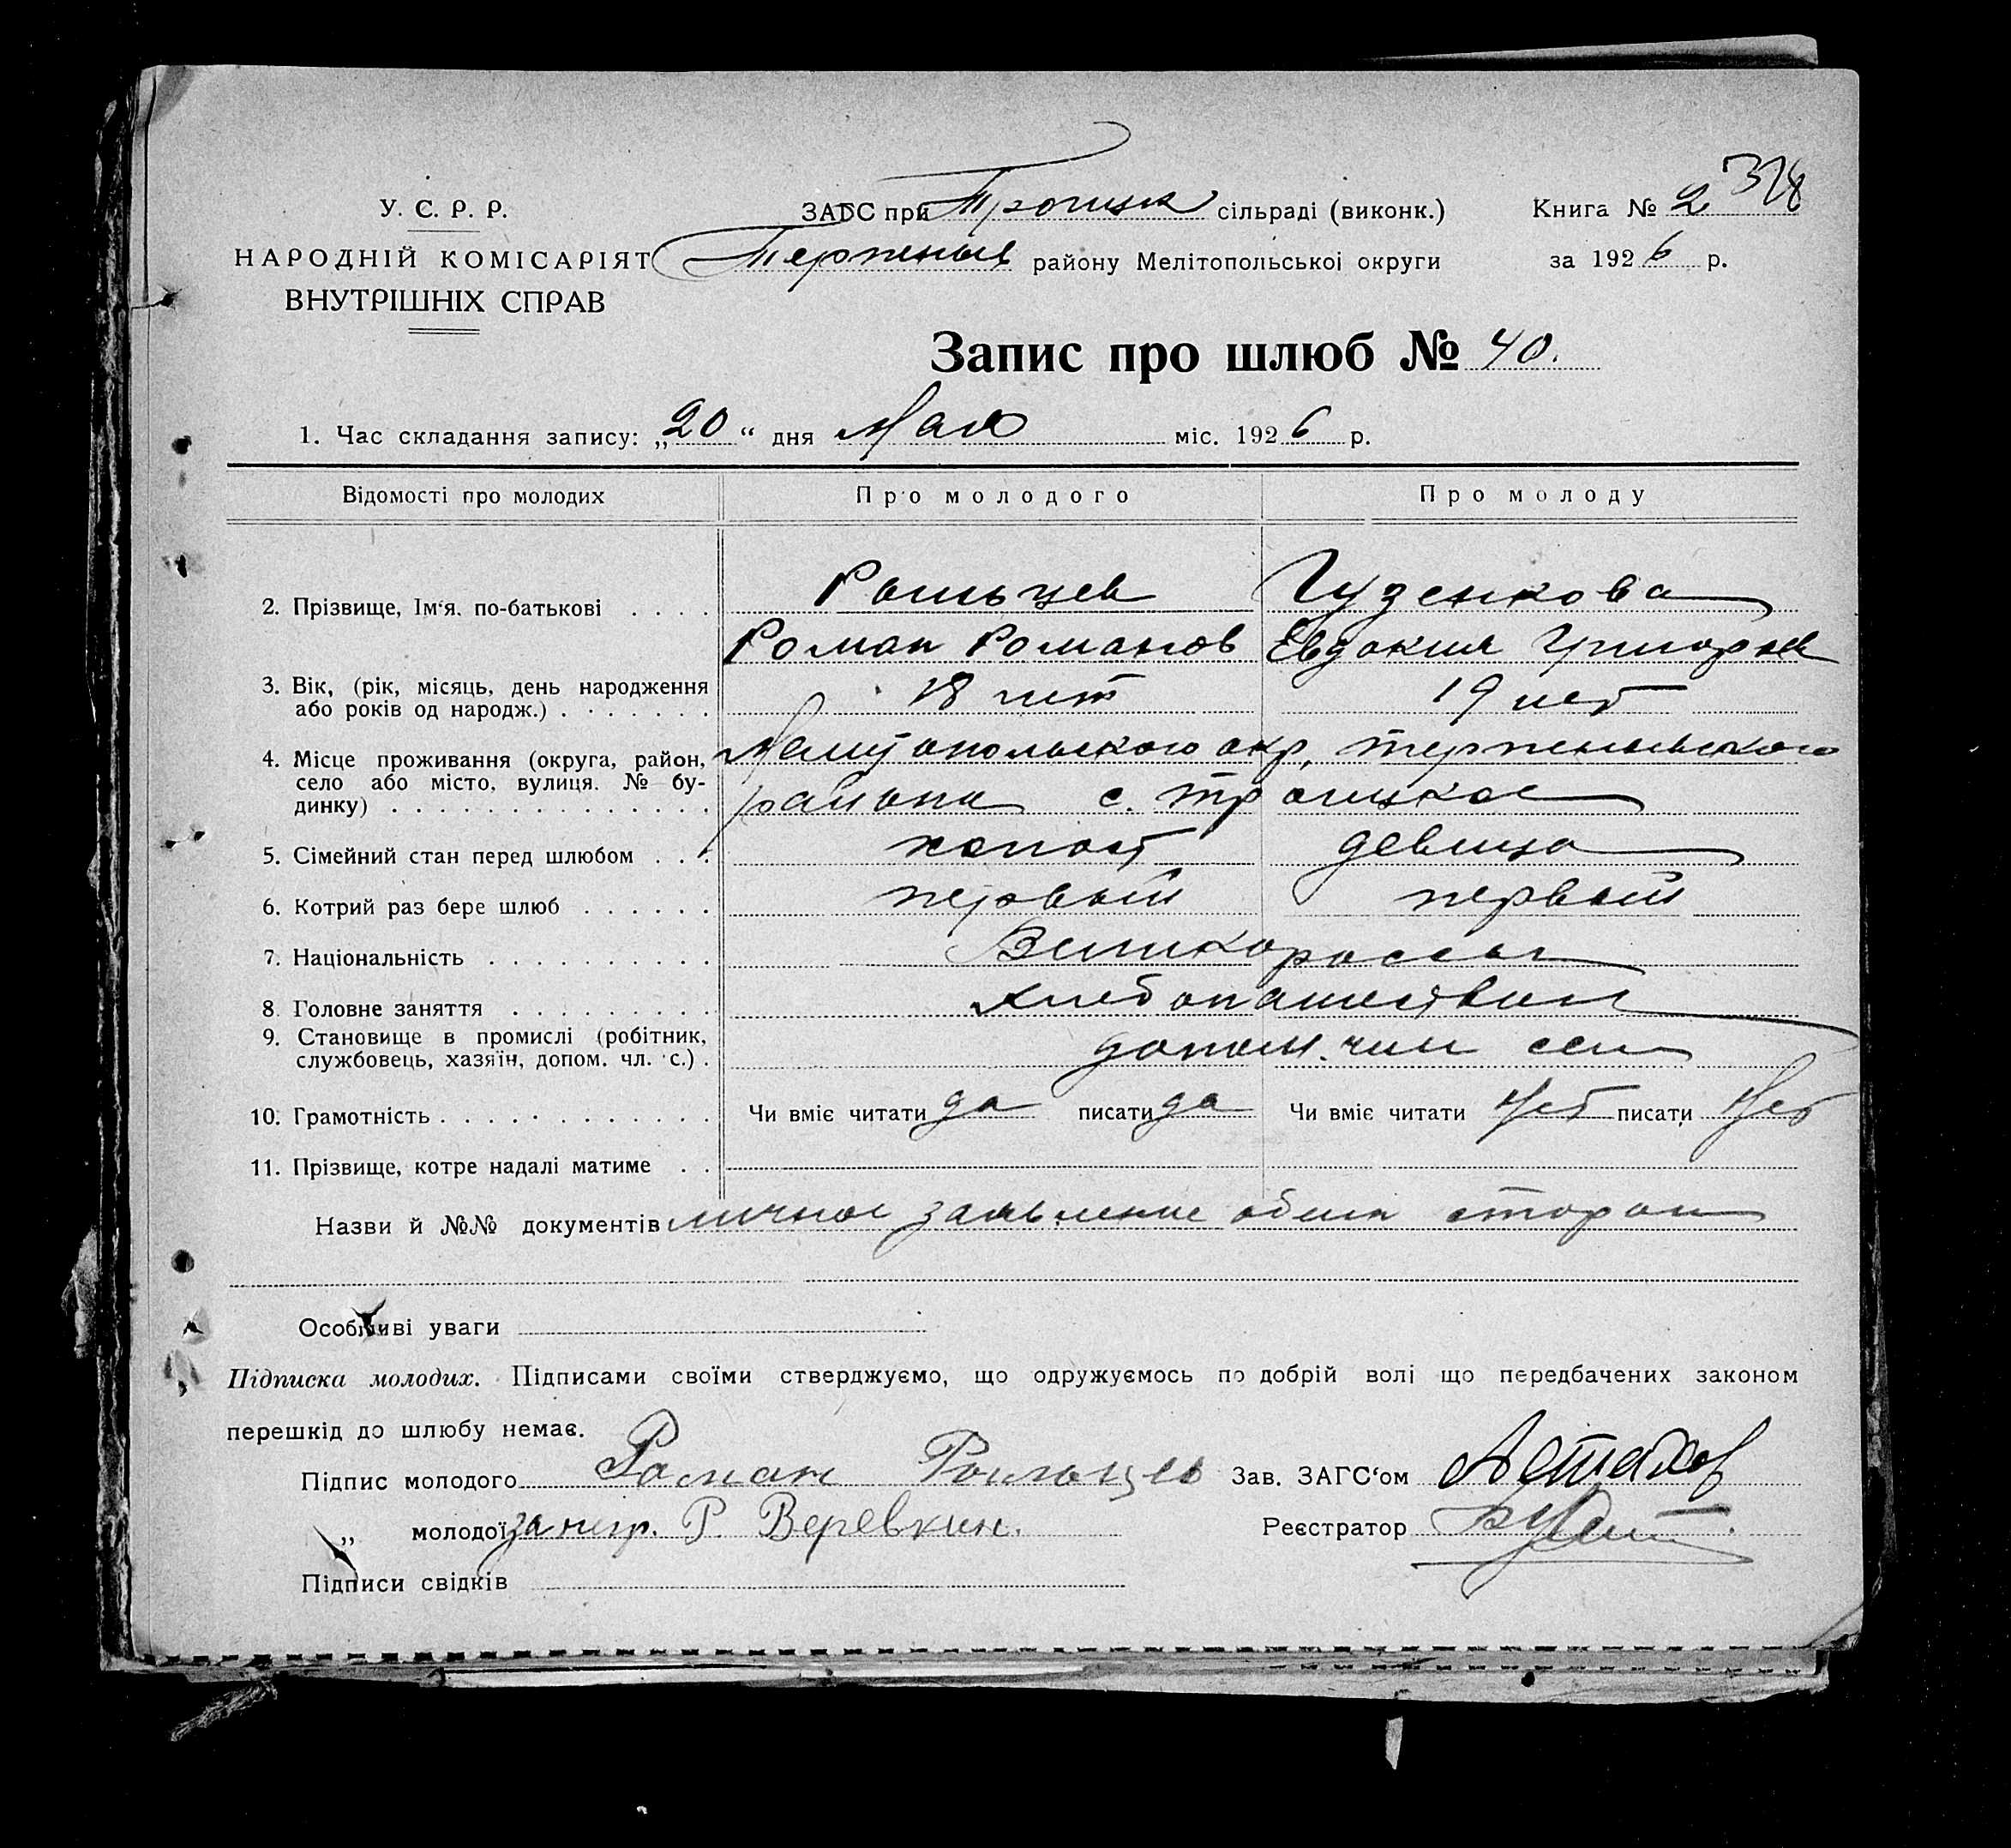 328
У. С. Р. Р.
НАРОДНІЙ КОМІСАРІЯТ
ВНУТРІШНІХ СПРАВ
ЗАГС при Троицк сільраді (виконк.)
Терпеньев району Мелітопольської округи
Книга № 2
за 1926 р.
Запис про шлюб № 40.
1. Час складання запису: „20“ дня Мая міс. 1926 р.
Відомості про молодих Про молодого Про молоду
2. Прізвище, Ім‘я. по-батькові Рыльцев Гузенкова
Роман Романов Евдокия Григорьев
3. Вік, (рік, місяць, день народження або років од народж.) 18 лет 19 лет
4. Місце проживання (округа, район, Мелитопольского окр, терпеньевского
село або місто, вулиця. № бу-
динку) района с. троицкое
5. Сімейний стан перед шлюбом холост девица
6. Котрий раз бере шлюб первый первый
7. Національність Великороссы
8. Головне заняття хлебопашество
9. Становище в промислі (робітник,
службовець, хазяїн, допом. чл. с.) допом. член сем
10. Грамотність Чи вміє читати да писати да Чи вміє читати Нет писати Нет
11. Прізвище, котре надалі матиме
Назви й №№ документів личное заявление обеих сторон
Особливі уваги
Підписка молодих. Підписами своїми стверджуємо, що одружуємось по добрій волі що передбачених законом
перешкід до шлюбу немає.
Підпис молодого Роман Рыльцев Зав. ЗАГС‘ом Асташов
„ молодої за негр. Р. Веревкин. Реєстратор
Підписи свідків